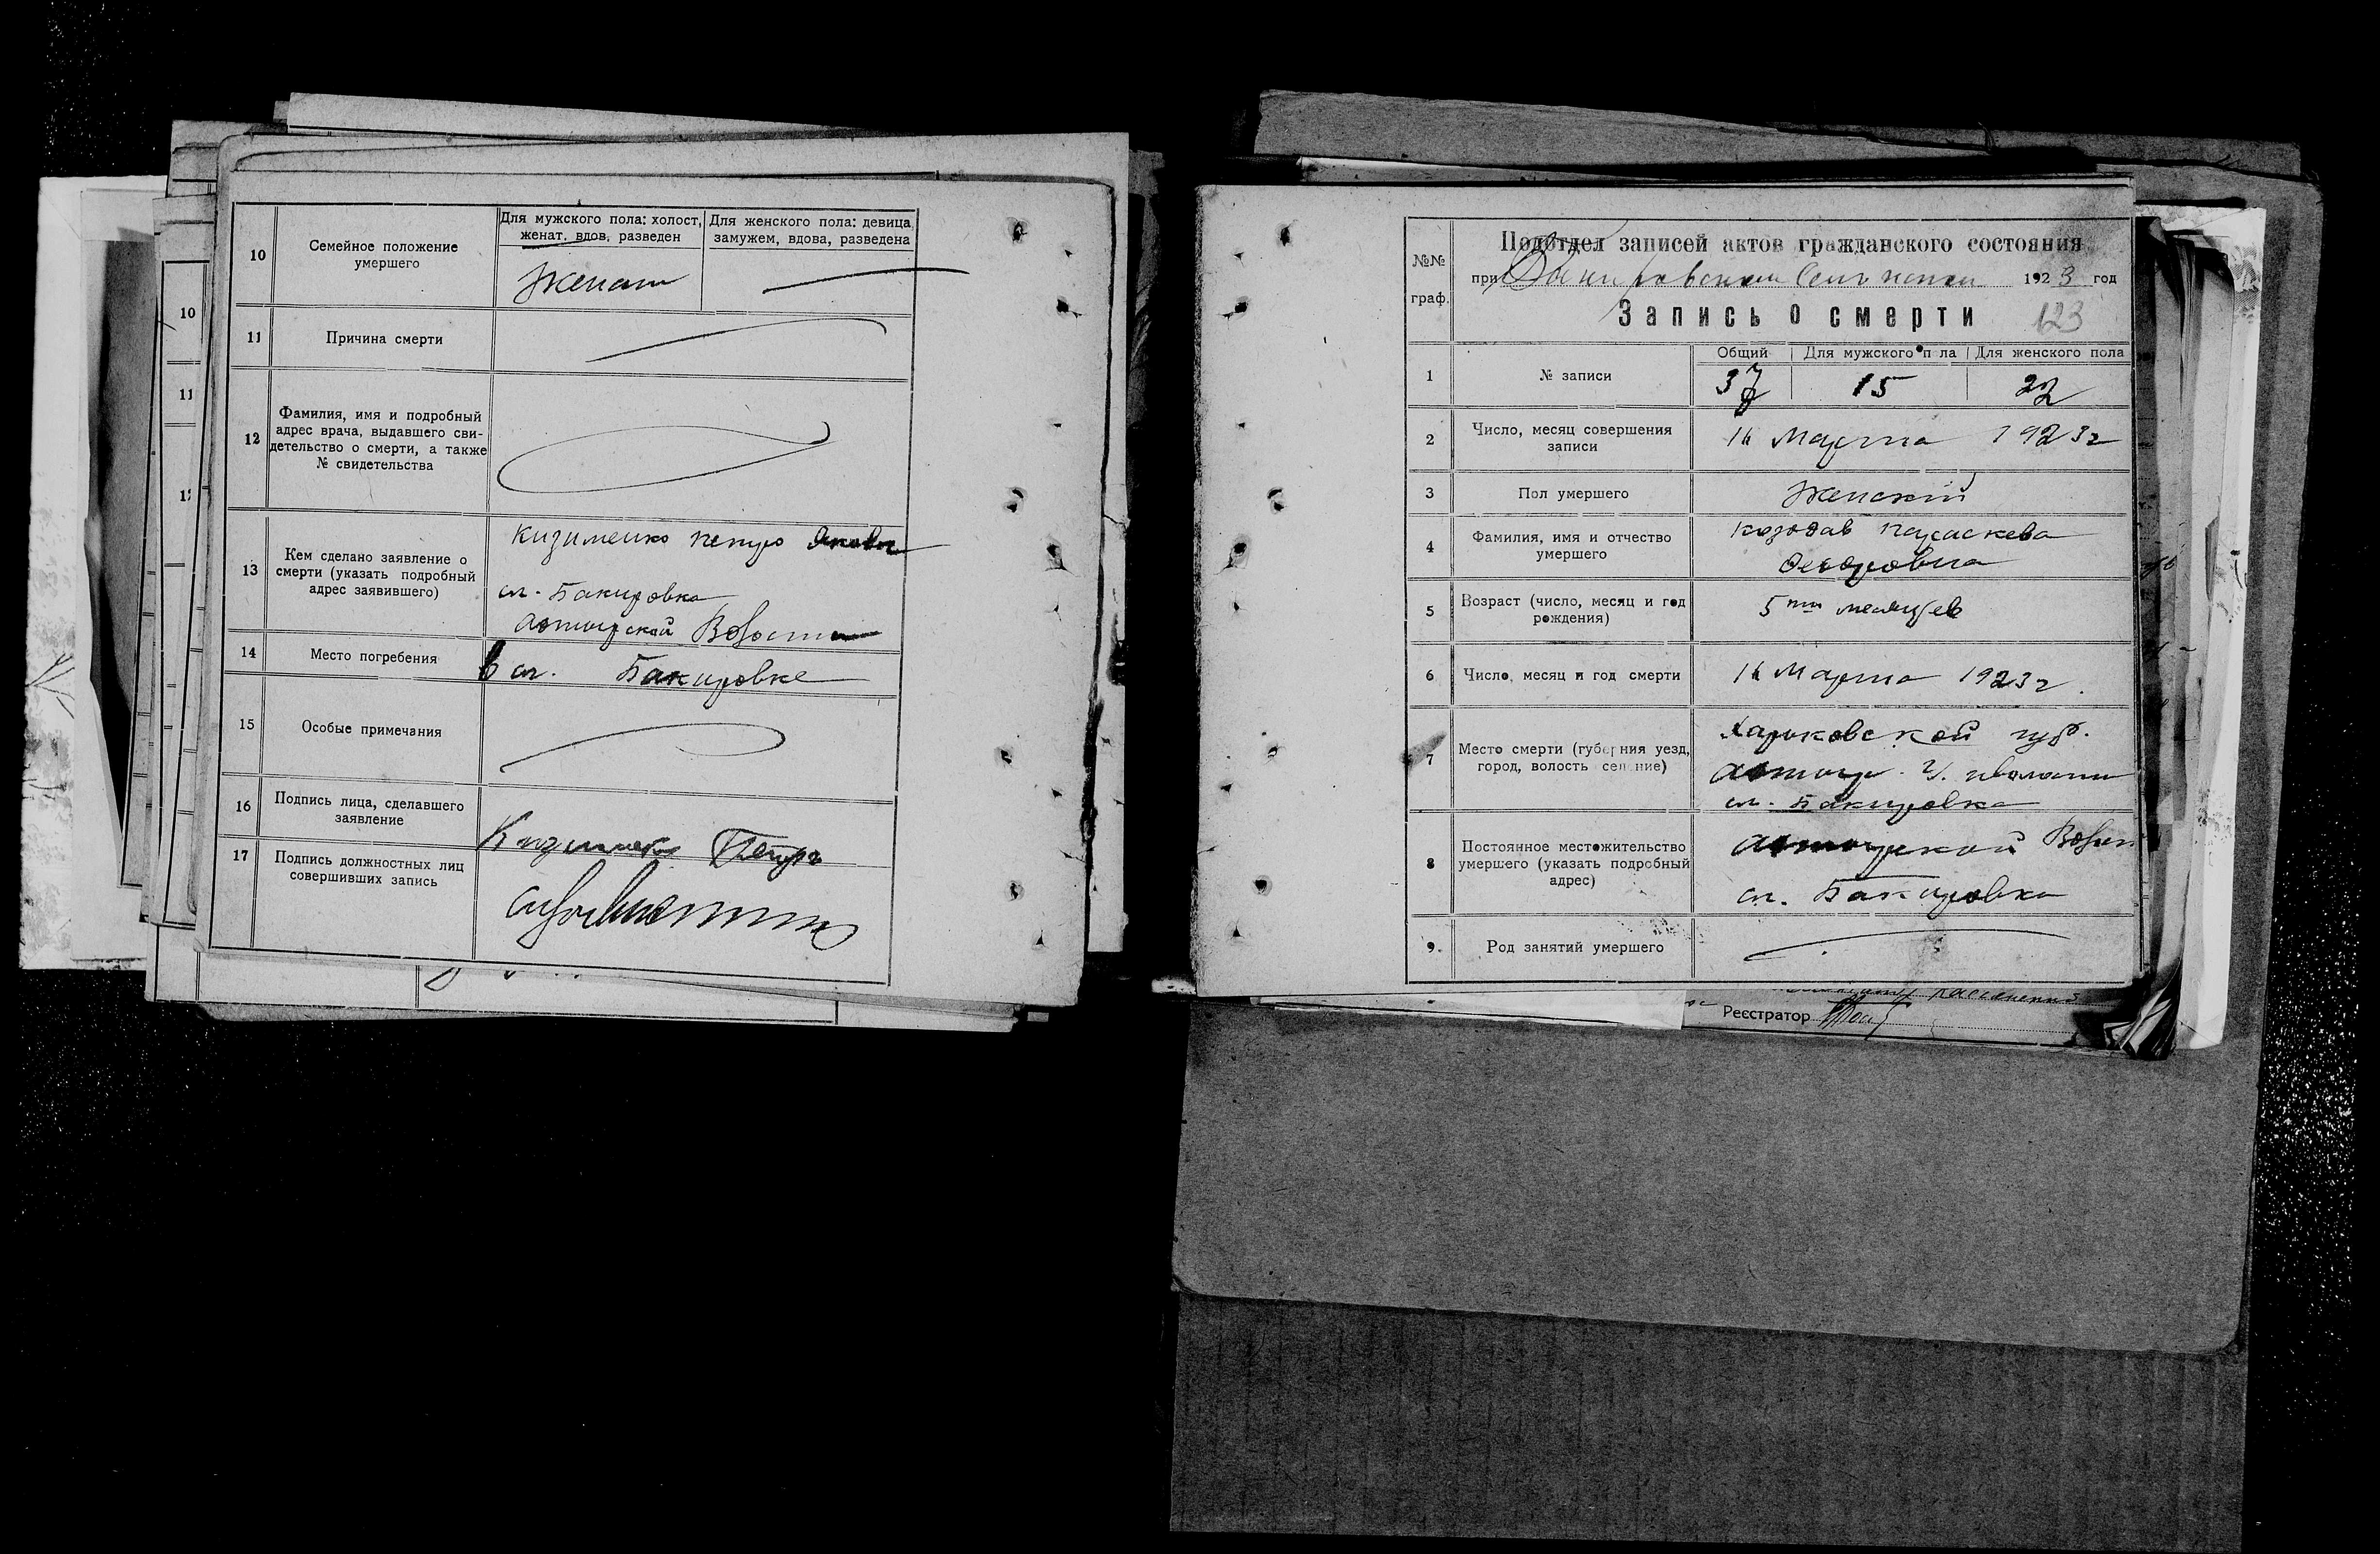 10
Семейное положение
умершего
Для мужского пола: холост,
женат, вдов, разведен
Для женского пола: девица,
замужем, вдова, разведена
женат
11
Причина смерти
12
Фамилия, имя и подробный
адрес врача, выдавшего сви-
детельство о смерти, а также
№ свидетельства
13
Кем сделано заявление о
смерти (указать подробный
адрес заявившего)
Кизименко Петро
сл. Бакировка
14
Место погребения
в сл. Бакировке
15
Особые примечания
16
Подпись лица, сделавшего
заявление
Петръ
17
Подпись должностных лиц
совершивших запись
10
11
№№
граф.
Подотдел записей актов гражданского состояния
при 1923 год
Запись о смерти 123
1
№ записи
Общий
Для мужского пола
Для женского пола
37
15
22
2
Число, месяц совершения
записи
Марта 1923 г
3
Пол умершего
Женский
4
Фамилия, имя и отчество
умершего
Козодав Параскева
Федоровна
5
Возраст (число, месяц и год
рождения)
5ти месяцев
6
Число, месяц и год смерти
Марта 1923 г.
7
Место смерти (губерния уезд,
город, волость селение)
Харьковской губ.
сл. Бакировка
8
Постоянное местожительство
умершего (указать подробный
адрес)
сл. Бакировка
9.
Род занятий умершего
Реєстратор